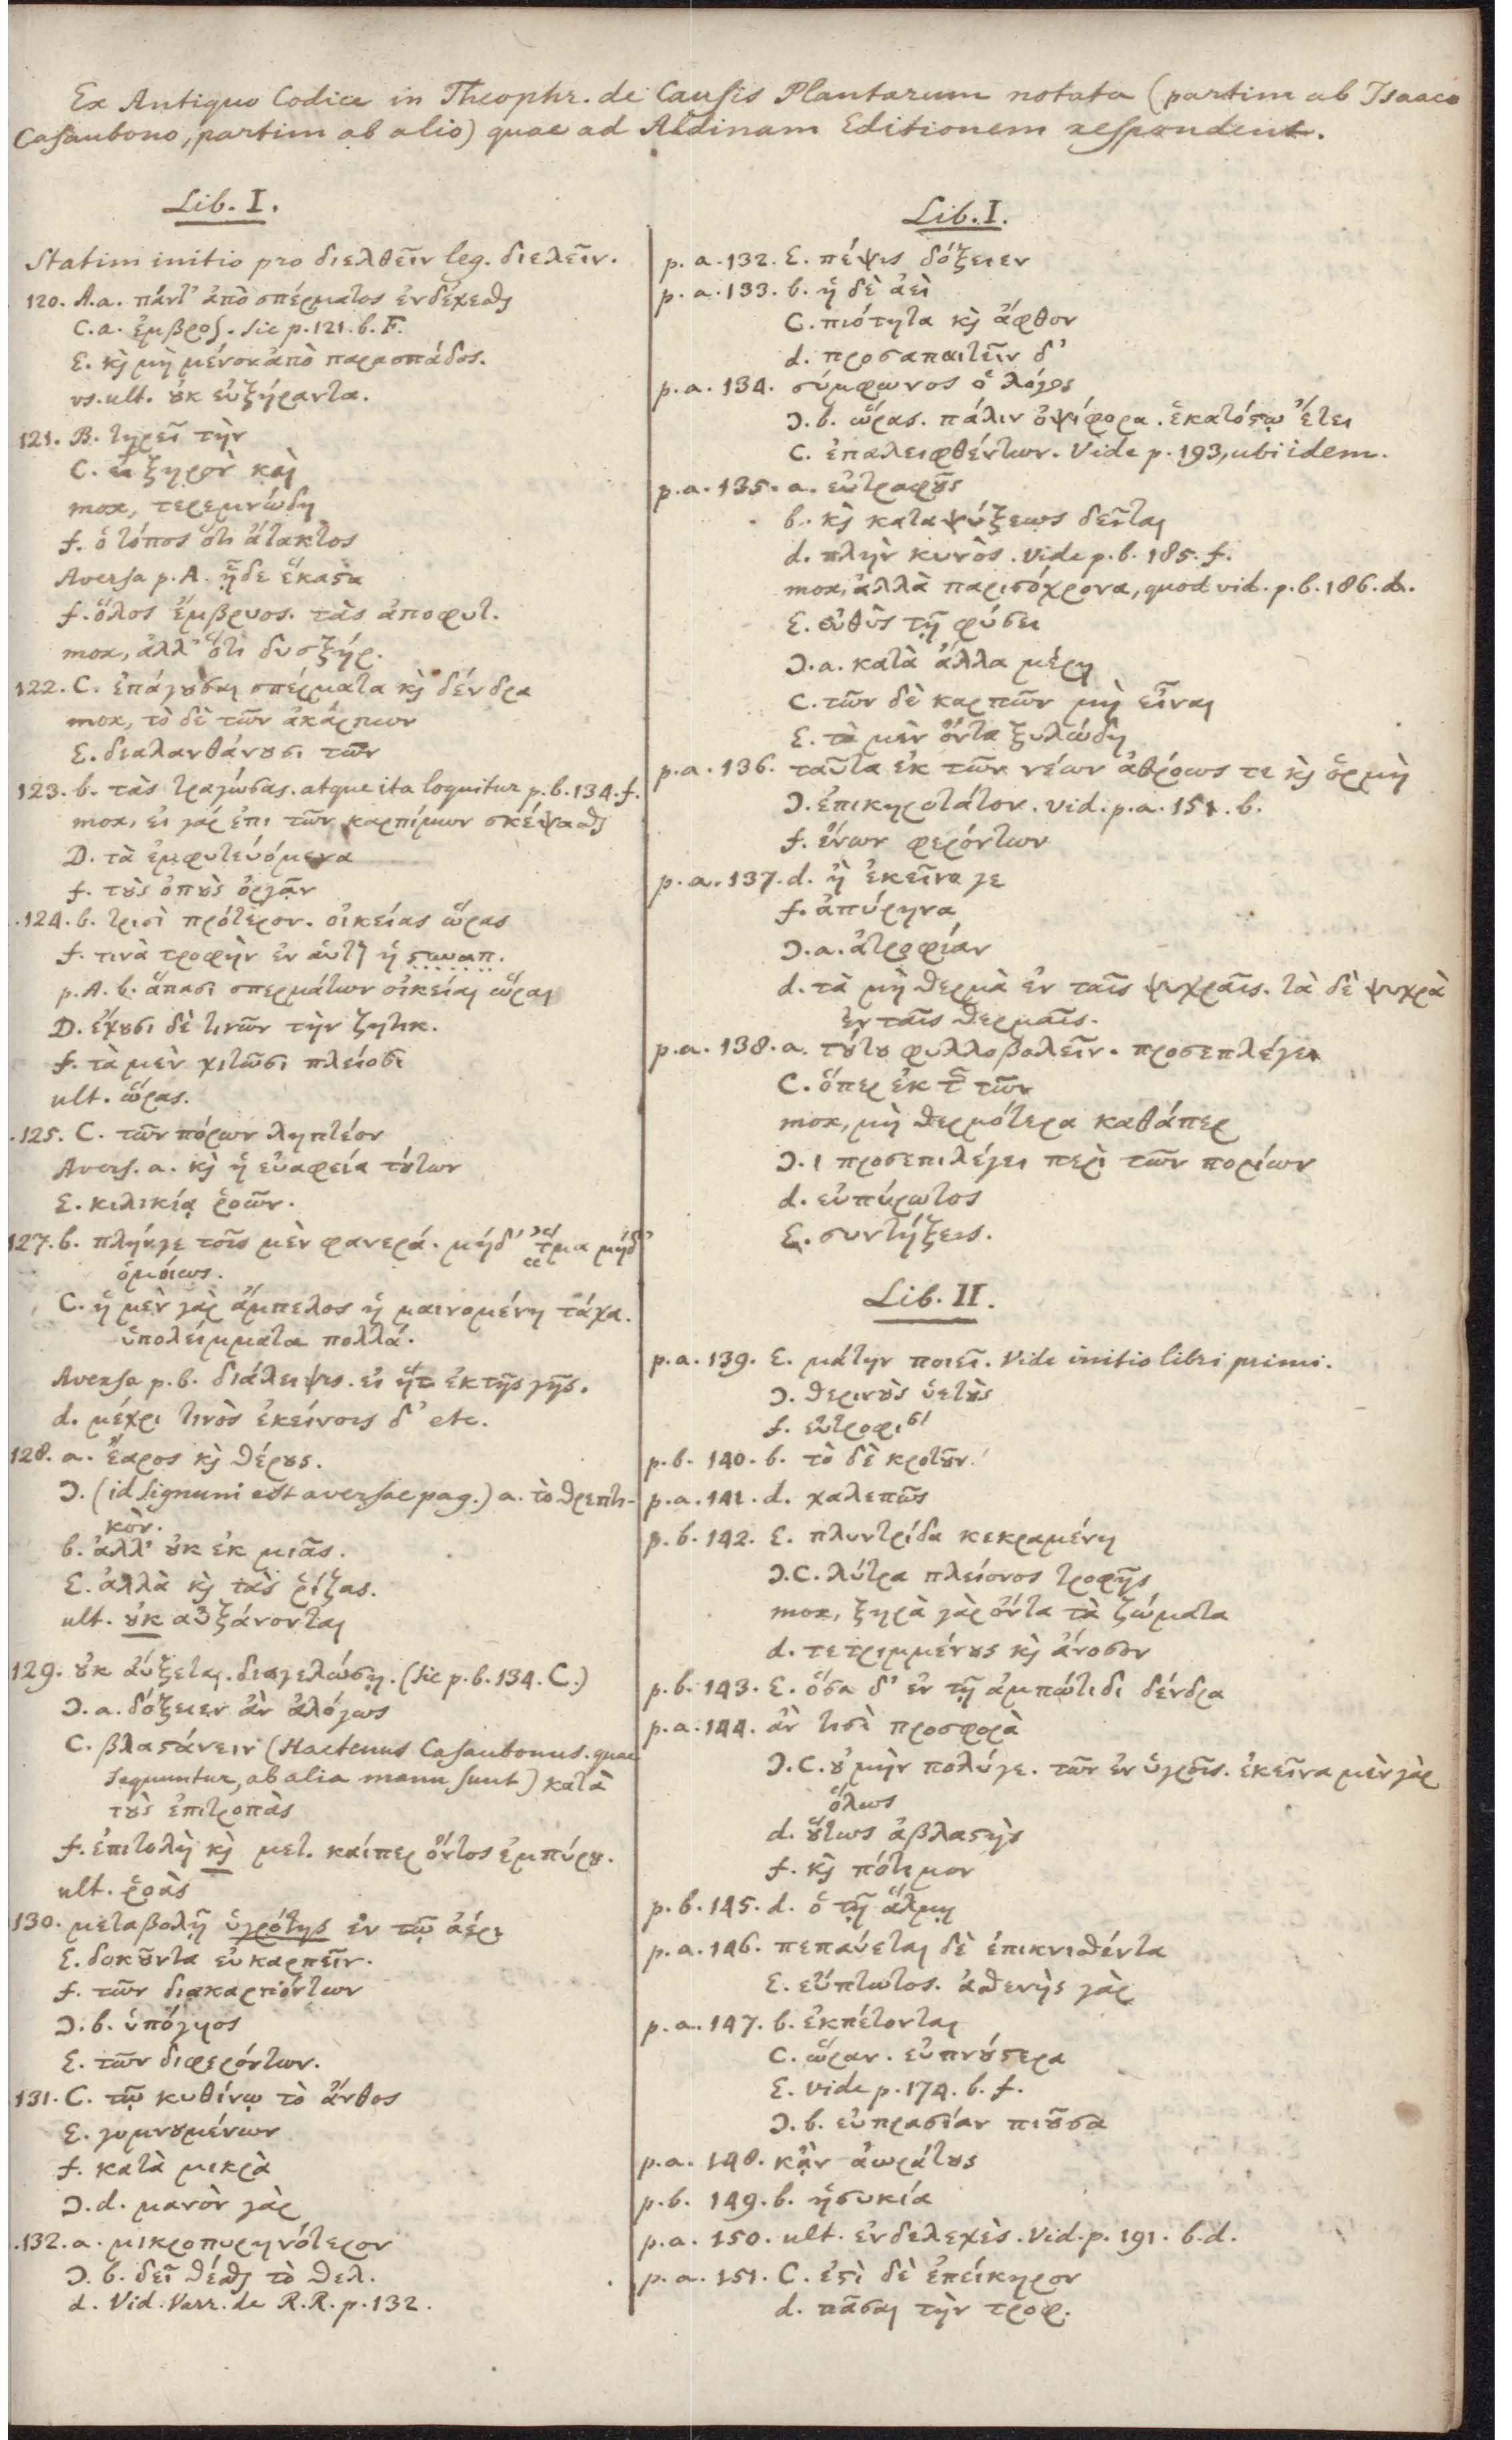 Ex Antiquo Codice in Theophr. de Causis Plantarum notata (partim ab Isaaco
Casaubono, partim ab alio) quae ad Aldinam Editionem respondent.
Lib. I.
Statim initio pro διελθεῖν leg. διελεῖν.
120. A.a. πάντ' ἀπὸ σπέρματος ἐνδέχεσθαι
C.a. ἔμβροχ. sic p.121.b.F.
E. καὶ μὴ μένον ἀπὸ παρασπάδος.
vs.ult. οὐκ εὐξήραντα.
121. B. τηρεῖ τὴν
C. ξηρὸν καὶ
mox, τερεμνώδη
f. ὁ τόπος ὅτι ἄτακτος
Aversa p.A. ᾗδε ἕκαστα
f. ὅλος ἔμβρυος. τὰς ἀποφυτ.
mox, ἀλλ' ὅτι δυσξήρ.
122. C. ἐπάγουσαι σπέρματα καὶ δένδρα
mox, τὸ δὲ τῶν ἀκάρπων
E. διαλανθάνουσι τῶν
123. b. τὰς τραγώσας. atque ita loquitur p.b.134.f.
mox, εἰ γάρ ἐπι τῶν καρπίμων σκέψασθαι
D. τὰ ἐμφυτευόμενα
f. τοὺς ὀποὺς ὀργᾷν
.124. b. τρισὶ πρότερον. οἰκείας ὥρας
f. τινὰ τροφὴν ἐν αὐτῇ ἡ συναπ.
p.A.b. ἅπασι σπερμάτων οἰκείαι ὧραι
D. ἔχουσι δὲ τινῶν τὴν ζητικ.
f. τὰ μὲν χιτῶσι πλείοσι
ult. ὥρας.
.125. C. τῶν πόρων ληπτέον
Avers. a. καὶ ἡ εὐαφεία τούτων
E. κιλικίᾳ ῥοῶν.
127. b. πλήνγε τοῖς μὲν φανερά. μήδ' μήδ'
ὁμοίως.
C. ἡ μὲν γὰρ ἄμπελος ἡ μαινομένη τάχα.
ὑπολείμματα πολλά.
Aversa p.b. διάλειψις. εἰ ἐκ τῆς γῆς.
d. μέχρι τινὸς ἐκείνοις δ' etc.
128. a. ἔαρος καὶ θέρους.
Ɔ. (id signum est aversae pag.) a. τὸ θρεπτι-
κόν.
b. ἀλλ' οὐκ ἐκ μιᾶς.
E. ἀλλὰ καὶ τὰς ῥίζας.
ult. οὐκ αὐξάνονται
129. οὐκ αὔξεται. διαγελώσῃ. (sic p.b.134.C.)
Ɔ.a. δόξειεν ἂν ἀλόγως
C. βλαστάνειν (Hactenus Casaubonus. quae
sequuntur, ab alia manu sunt) κατὰ
τοὺς ἐπιτροπὰς
f. ἐπιτολὴ καὶ μετ. καίπερ ὄντος ἐμπύρου.
ult. ῥοὰς
130. μεταβολῇ ὑγρότης ἐν τῷ ἀέρι
E. δοκοῦντα εὐκαρπεῖν.
f. τῶν διακαρπόντων
Ɔ.b. ὑπόγυος
E. τῶν διφερόντων.
131. C. τῷ κυθίνῳ τὸ ἄνθος
E. γυμνουμένων
f. κατὰ μικρὰ
Ɔ.d. μανὸν γὰρ
.132. a. μικροπυρηνότερον
Ɔ.b. δεῖ θέσθαι τὸ θελ.
d. Vid. Varr. de R.R. p.132.
Lib. I.
p.a.132. E. πέψις δόξειεν
p.a.133. b. ἡ δὲ ἀεὶ
C. πιότητα καὶ ἄφθον
d. προσαπαιτεῖν δ'
p.a.134. σύμφωνος ὁ λόγος
Ɔ.b. ὥρας. πάλιν ὀψίφορα. ἑκατόστῳ ἔτει
C. ἐπαλειφθέντων. Vide p.193, ubi idem.
p.a.135. a. εὐτραφοῦς
b. καὶ καταψύξεως δεῖται
d. πλὴν κυνὸς. Vide p.b.185.f.
mox, ἀλλὰ παρισόχρονα, quod vid. p.b.186.d.
E. εὐθὺς τῇ φύσει
Ɔ.a. κατὰ ἄλλα μέρη
C. τῶν δὲ καρπῶν μὴ εἶναι
E. τὰ μὲν ὄντα ξυλώδη
p.a.136. ταῦτα ἐκ τῶν νέων ἀθρόως τε καὶ ὁρμὴ
Ɔ. ἐπικηρότατον. vid. p.a.151.b.
f. ἔνων φερόντων
p.a.137. d. ἢ ἐκεῖνα γε
f. ἀπύρηνα
Ɔ.a. ἀτροφίαν
d. τὰ μὴ θερμὰ ἐν ταῖς ψυχραῖς. τὰ δὲ ψυχρὰ
ἐν ταῖς θερμαῖς.
p.a.138. a. τούτου φυλλοβολεῖν. προσεπλέγει
C. ὅπερ ἐκ τῶν
mox, μὴ θερμότερα καθάπερ
Ɔ. ι προσεπιλέγει περὶ τῶν πορίων
d. εὐπύρωτος
E. συντήξεις.
Lib. II.
p.a.139. E. μάτην ποιεῖ. Vide initio libri primi.
Ɔ. θερινοὺς ὑετοὺς
f. εὔτροφι
p.b.140. b. τὸ δὲ κροτοῦν.
p.a.141. d. χαλεπῶς
p.b.142. E. πλυντρίδα κεκραμένη
Ɔ.C. λύτρα πλείονος τροφῆς
mox, ξηρὰ γὰρ ὄντα τὰ ζώματα
d. τετριμμένους καὶ ἄνοσον
p.b.143. E. ὅσα δ' ἐν τῇ ἀμπώτιδι δένδρα
p.a.144. ἂν τισὶ προσφορὰ
Ɔ.C. οὐ μὴν πολύγε. τῶν ἐν ὑγροῖς. ἐκεῖνα μὲν γὰρ
ὅλως
d. οὕτως ἀβλαστὴς
f. καὶ πότιμον
p.b.145. d. ὁ τῇ ἅλμῃ
p.a.146. πεπαύεται δὲ ἐπικνιθέντα
E. εὔπτωτος. ἀσθενὴς γὰρ
p.a.147. b. ἐκπέτονται
C. ὥραν. εὐπνούστερα
E. vide p.174.b.f.
Ɔ.b. εὐπρασίαν πιοῦσα
p.a.148. κἂν ἀωράτους
p.b.149. b. ἡσυκία
p.a.150. ult. ἐνδελεχὲς. Vid. p.191.b.d.
p.a.151. C. ἐστὶ δὲ ἐπείκηρον
d. πᾶσαι τὴν τροφ.